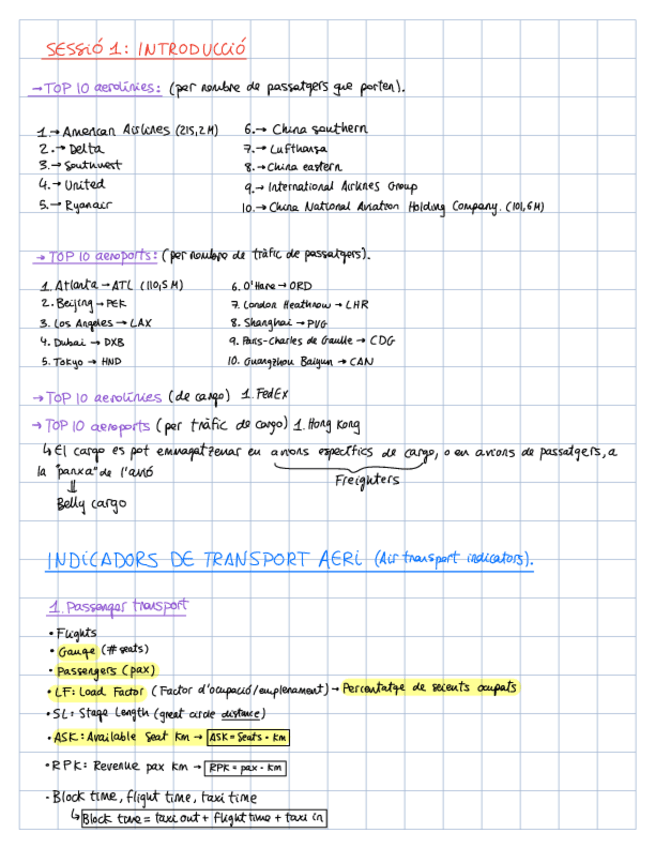 SESSIÓ 1: INTRODUCCIÓ
→TOP 10 aerolínies: (per nombre de passatgers que porten).
1.→American Airlines (215,2M)
2.→Delta
3.→Southwest
4.→United
5.→Ryanair
6.→China southern
7.→Lufthansa
8.→China eastern
9.→International Airlines Group
10.→China National Aviation Holding Company. (101,6M)
→TOP 10 aeroports: (per nombre de tràfic de passatgers).
1. Atlanta→ATL (110,5M)
2. Beijing→PEK
3. Los Angeles→LAX
4. Dubai→DXB
5. Tokyo→HND
6. O'Hare→ORD
7. London Heathrow→LHR
8. Shanghai→PVG
9. Paris-Charles de Gaulle→CDG
10. Guangzhou Baiyun→CAN
→TOP 10 aerolínies (de cargo) 1. FedEx
→TOP 10 aeroports (per tràfic de cargo) 1. Hong Kong
↳El cargo es pot emmagatzemar en avions específics de cargo, o en avions de passatgers, a
la "panxa" de l'avió
Freighters
⇓
Belly cargo
INDICADORS DE TRANSPORT AERI (Air transport indicators).
1. Passenger transport
• Flights
• Gauge (# seats)
• Passengers (pax)
• LF: Load Factor (Factor d'ocupació/emplenament)→Percentatge de seients ocupats
• SL: Stage Length (great circle distance)
• ASK: Available Seat Km→ASK = Seats · Km
• RPK: Revenue pax Km→RPK = pax · Km
• Block time, flight time, taxi time
↳Block time = taxi out + flight time + taxi in